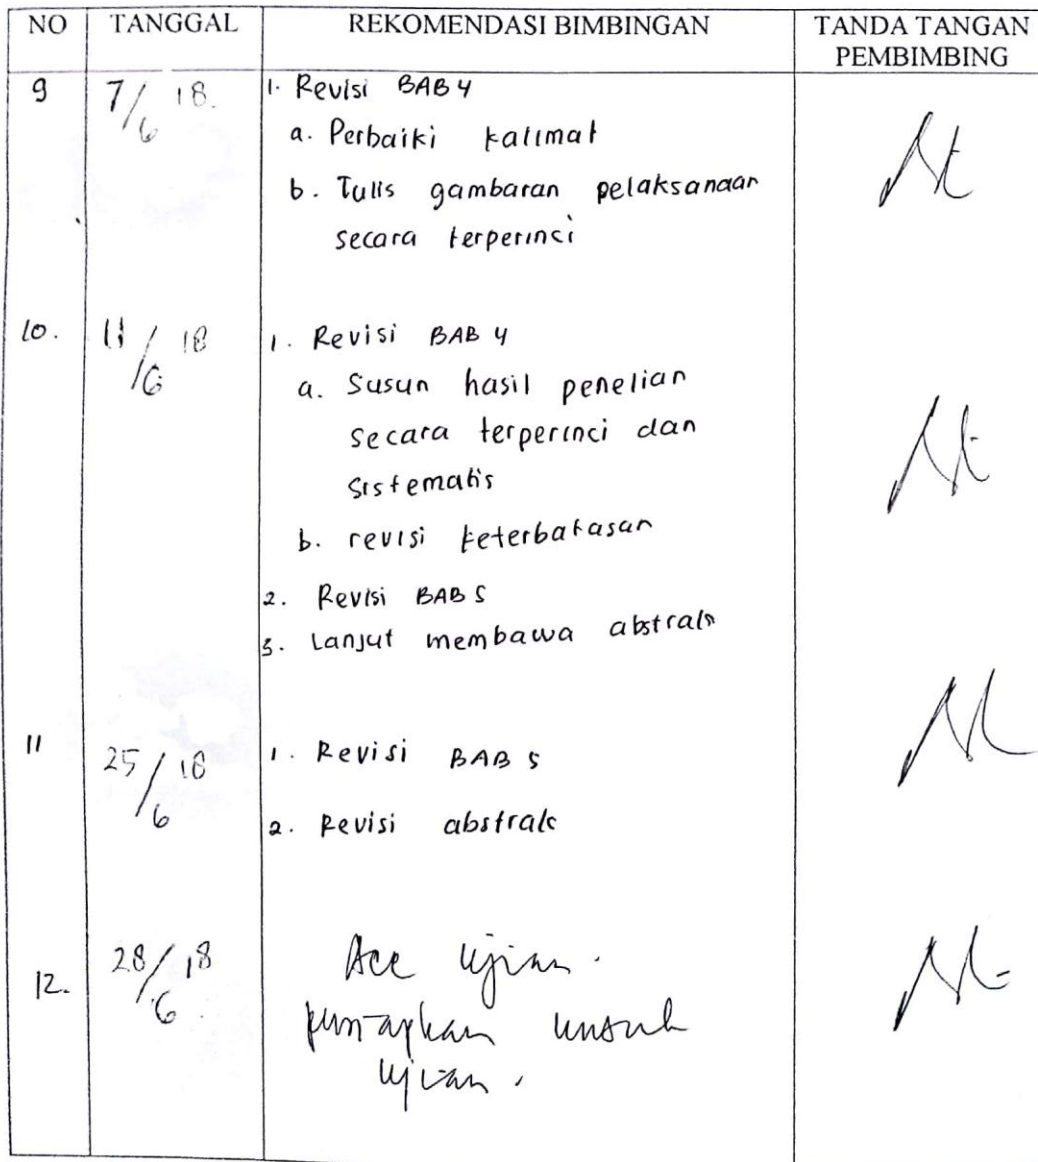 NO TANGGAL REKOMENDASI BIMBINGAN TANDA TANGAN
PEMBIMBING
9 7/6 18. 1. Revisi BAB 4
a. Perbaiki kalimat
b. Tulis gambaran pelaksanaan
secara terperinci
10. 11/6 18 1. Revisi BAB 4
a. Susun hasil penelian
secara terperinci dan
sistematis
b. revisi keterbatasan
2. Revisi BAB 5
3. Lanjut membawa abstrak
11 25/6 18 1. Revisi BAB 5
2. Revisi abstrak
12. 28/6 18 Acc ujian.
untuk
ujian.